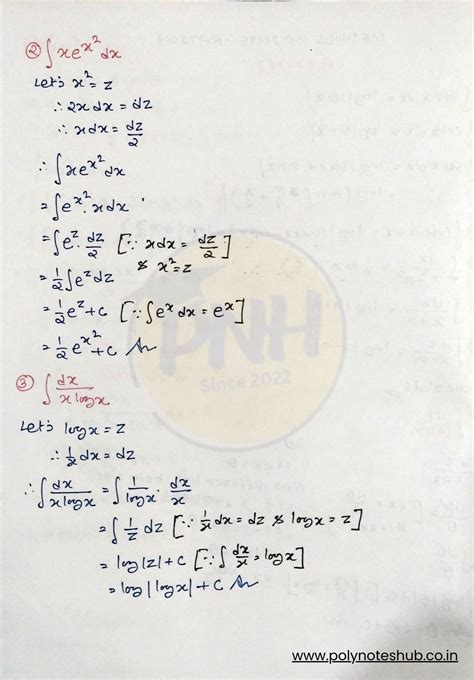 ② ∫xe^{x²}dx
Let's x² = z
∴ 2x dx = dz
∴ x dx = dz/2
∴ ∫xe^{x²}dx
= ∫e^{x²}. x dx
= ∫e^z. dz/2 [∵ x dx = dz/2]
& x² = z
= 1/2 ∫e^z dz
= 1/2 e^z + c [∵ ∫e^x dx = e^x]
= 1/2 e^{x²} + c Ans
③ ∫ dx/(x logx)
Let's logx = z
∴ 1/x dx = dz
∴ ∫ dx/(x logx) = ∫ 1/logx . dx/x
= ∫ 1/z dz [∵ 1/x dx = dz & logx = z]
= log|z| + c [∵ ∫ dx/x = logx]
= log|logx| + c Ans
PNH
Since 2022
www.polynoteshub.co.in